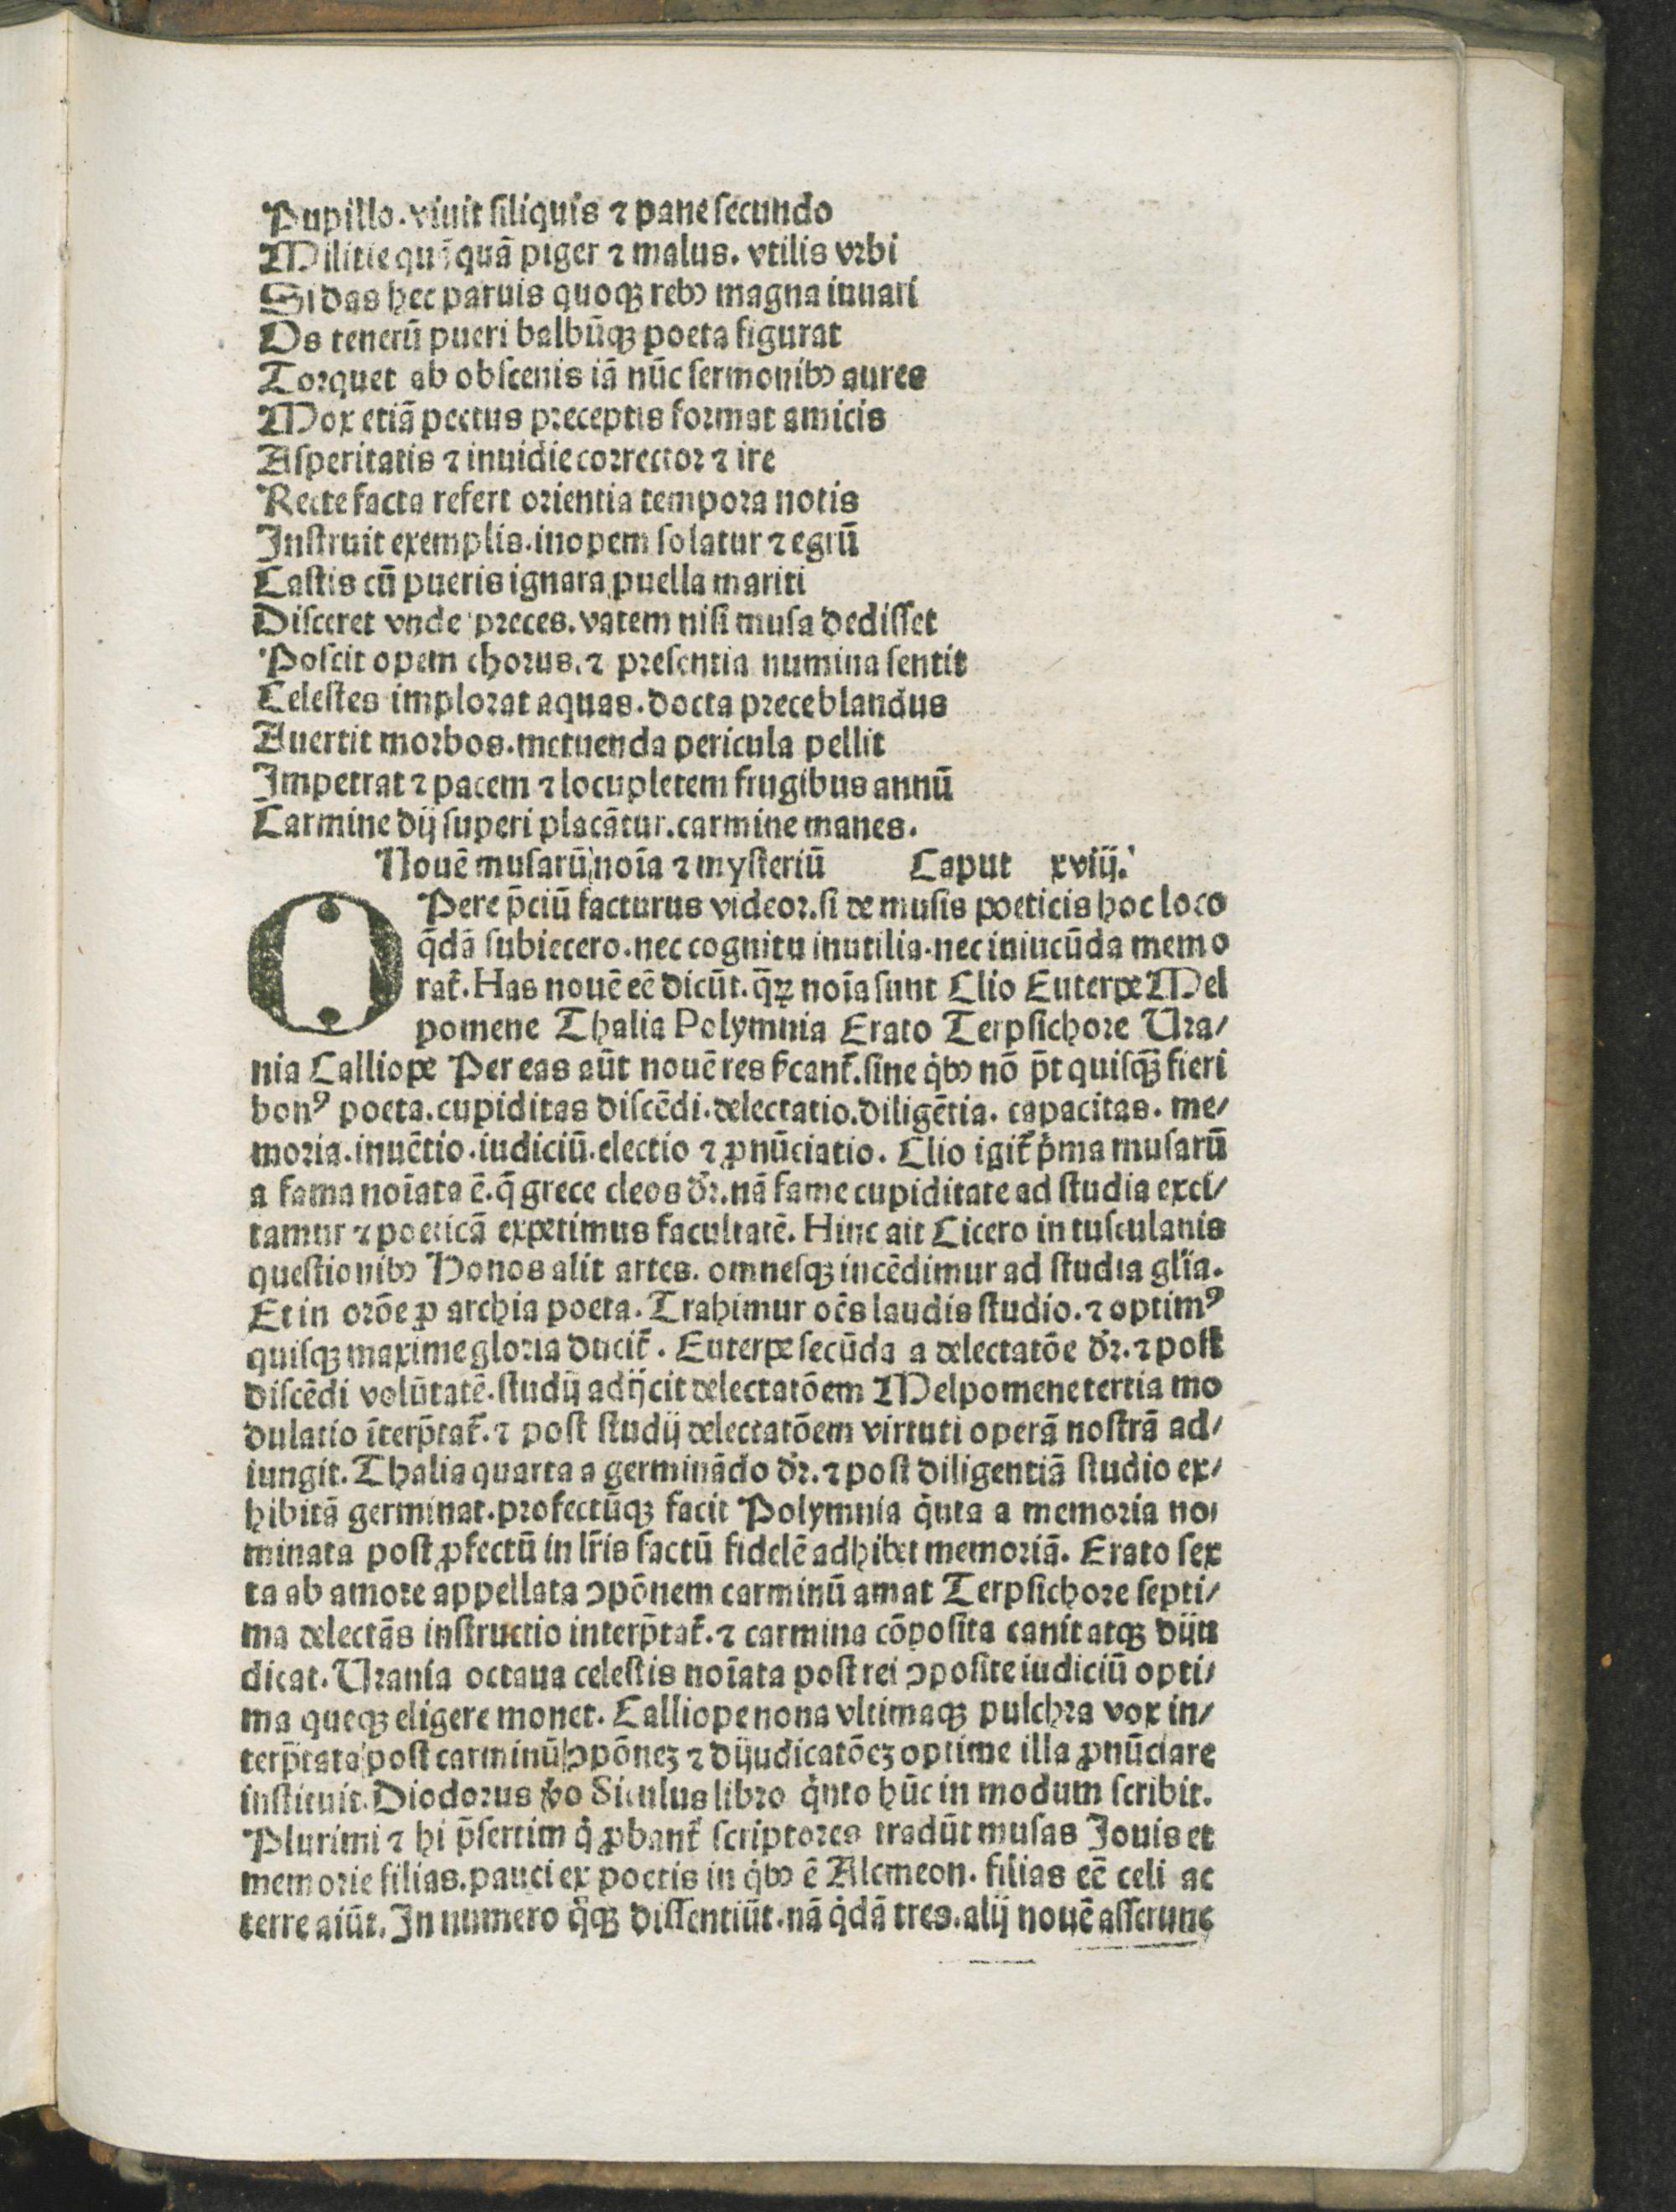 Pupillo. viuit siliquis ⁊ pane secundo
Militie quãquã piger ⁊ malus. vtilis vrbi
Si das hec paruis quoqꝫ rebꝰ magna iuuari
Os tenerũ pueri balbũqꝫ poeta figurat
Torquet ab obscenis iã nũc sermonibꝰ aures
Mox etiã pectus preceptis format amicis
Asperitatis ⁊ inuidie corrector ⁊ ire
Recte facta refert orientia tempora notis
Instruit exemplis. inopem solatur ⁊ egrũ
Castis cũ pueris ignara puella mariti
Disceret vnde preces. vatem nisi musa dedisset
Poscit opem chorus. ⁊ presentia numina sentit
Celestes implorat aquas. docta prece blandus
Auertit morbos. metuenda pericula pellit
Impetrat ⁊ pacem ⁊ locupletem frugibus annũ
Carmine dij superi placãtur. carmine manes.
Nouẽ musarũ noĩa ⁊ mysteriũ Caput xviij.
OPere p̃ciũ facturus videor. si de musis poeticis hoc loco
q̃dã subiecero. nec cognitu inutilia. nec iniucũda memo
rat̃. Has nouẽ eẽ dicũt. q̃ꝝ noĩa sunt Clio Euterpe Mel
pomene Thalia Polymnia Erato Terpsichore Ura/
nia Calliope Per eas aũt nouẽ res sͥcant̃. sine qͥbꝰ nõ p̃t quisqꝫ̃ fieri
bonꝰ poeta. cupiditas discẽdi. delectatio. diligẽtia. capacitas. me/
moria. inuẽtio. iudiciũ. electio ⁊ ꝓnũciatio. Clio igit̃ pͥma musarũ
a fama noĩata ẽ. q̃ grece cleos dr̃. nã fame cupiditate ad studia exci/
tamur ⁊ poeticã expetimus facultatẽ. Hinc ait Cicero in tusculanis
questionibꝰ Honos alit artes. omnesqꝫ incẽdimur ad studia glĩa.
Et in orõe ꝓ archia poeta. Trahimur oẽs laudis studio. ⁊ optimꝰ
quisqꝫ maxime gloria ducit̃. Euterpe secũda a delectatõe dr̃. ⁊ post
discẽdi volũtatẽ. studij adijcit delectatõem Melpomene tertia mo
dulatio ĩterp̃tat̃. ⁊ post studij delectatõem virtuti operã nostrã ad/
iungit. Thalia quarta a germinãdo dr̃. ⁊ post diligentiã studio ex/
hibitã germinat. profectũqꝫ facit Polymnia qͥnta a memoria no/
minata post ꝓfectũ in lr̃is factũ fidelẽ adhibet memoriã. Erato sex
ta ab amore appellata ꝯpõnem carminũ amat Terpsichore septi/
ma delectãs instructio interp̃tat̃. ⁊ carmina cõposita canit atqꝫ dijũ
dicat. Urania octaua celestis noĩata post rei ꝯposite iudiciũ opti/
ma queqꝫ eligere monet. Calliope nona vltimaqꝫ pulchra vox in/
terp̃tata post carminũ ꝯpõneꝫ ⁊ dijudicatõeꝫ optime illa ꝓnũciare
instituit. Diodorus ꝟo Siculus libro qͥnto hũc in modum scribit.
Plurimi ⁊ hi p̃sertim qͥ ꝓbant̃ scriptores tradũt musas Jouis et
memorie filias. pauci ex poetis in qͥbꝰ ẽ Alcmeon. filias eẽ celi ac
terre aiũt. In numero qͦqꝫ dissentiũt. nã qͥdã tres. alij nouẽ asserunt